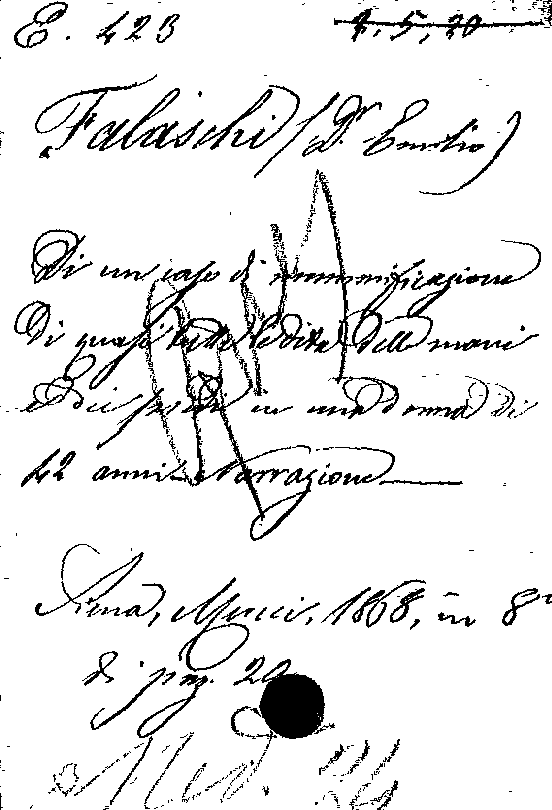 E. 423 2.5.20
Falaschi (Dr. Emilio)
Di un caso di mummificazione
di quasi tutte le dita delle mani
e dei piedi in una donna di
42 anni. Narrazione
Siena, Mucci, 1868, in 8°
di pag. 20
Med.